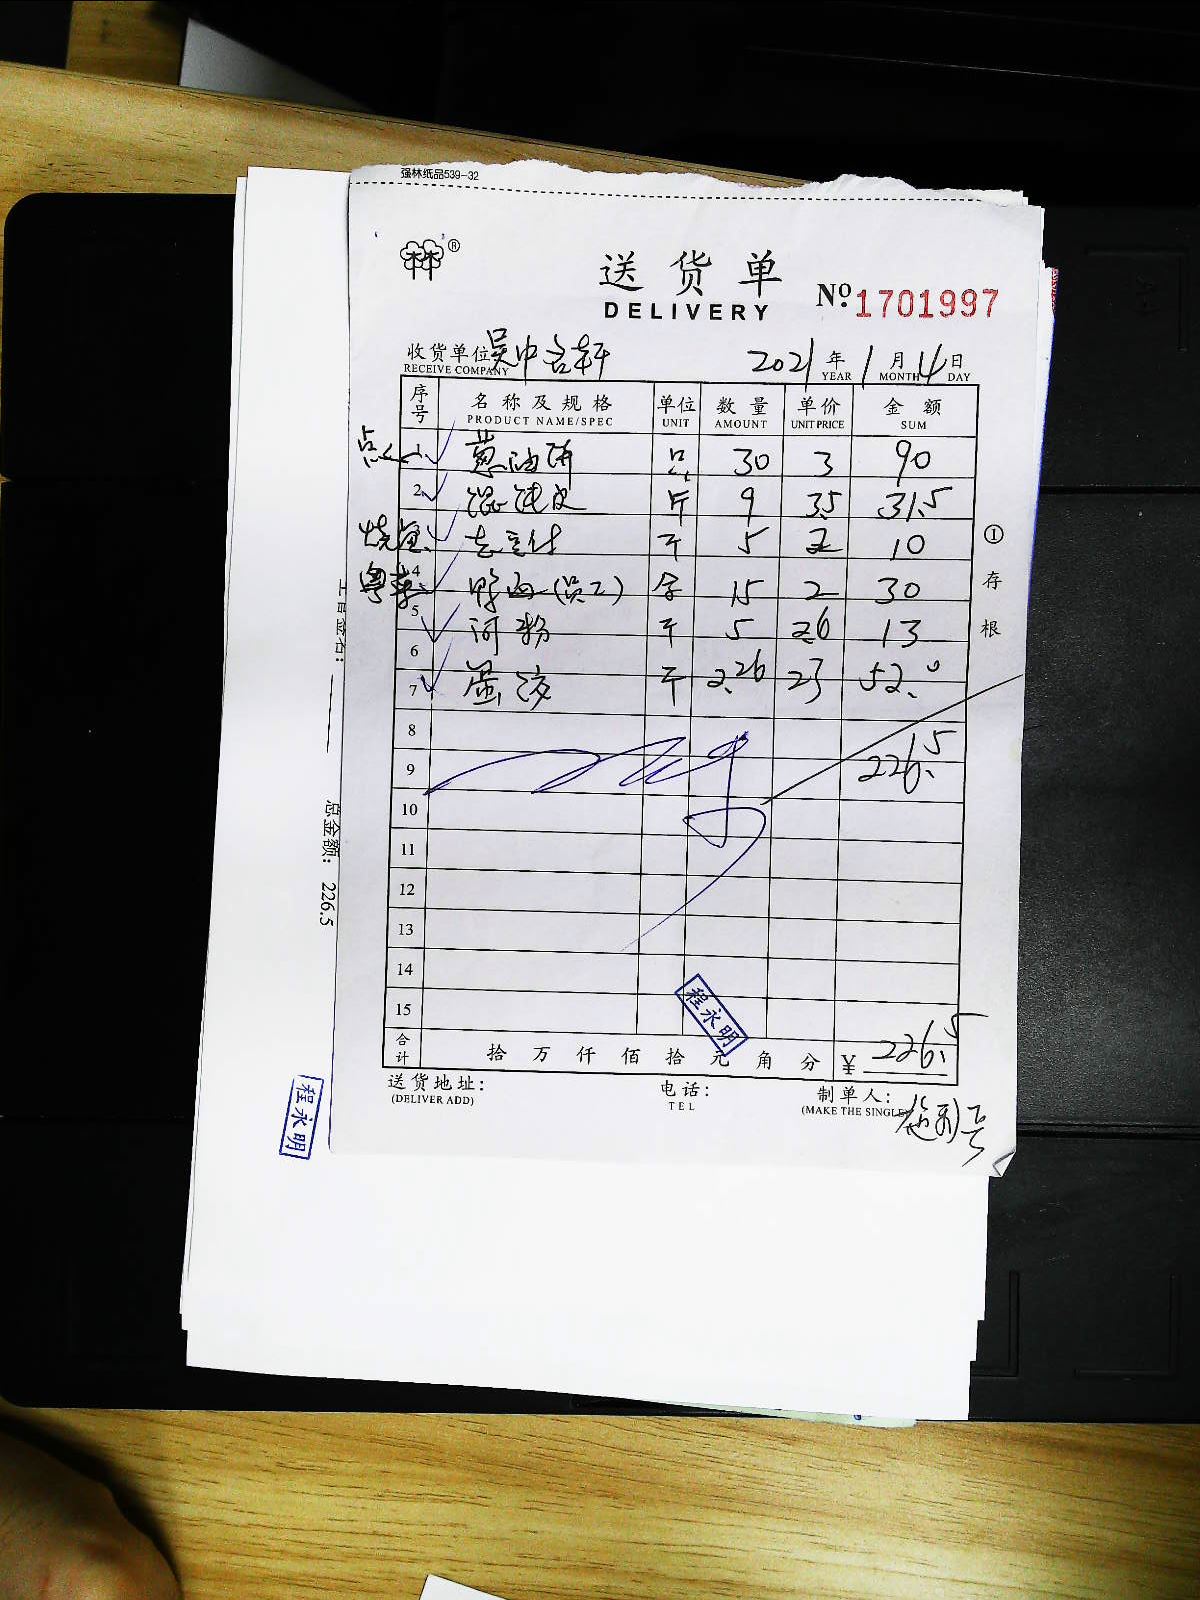 强林纸品539-32
林®
送货单
DELIVERY
Nº 1701997
收货单位 吴中
RECEIVE COMPANY
2021 年 1 月 4 日
YEAR MONTH DAY
序号 名称及规格 单位 数量 单价 金额
PRODUCT NAME/SPEC UNIT AMOUNT UNIT PRICE SUM
点心 1 葱油饼 只 30 3 90
2 混沌皮 斤 9 3.5 31.5
烧 斤 5 2 10
粤菜 4 鸭血(员工) 盒 15 2 30
5 河粉 斤 5 2.6 13
6
7 蛋液 斤 2.26 23 52.0
8
9 226.5
10
11
12
13
14
15
程永明
合计 拾 万 仟 佰 拾 元 角 分 ¥ 226.5
送货地址: 电话: 制单人:
(DELIVER ADD) TEL (MAKE THE SINGLE)
①存根
总金额: 226.5
程永明